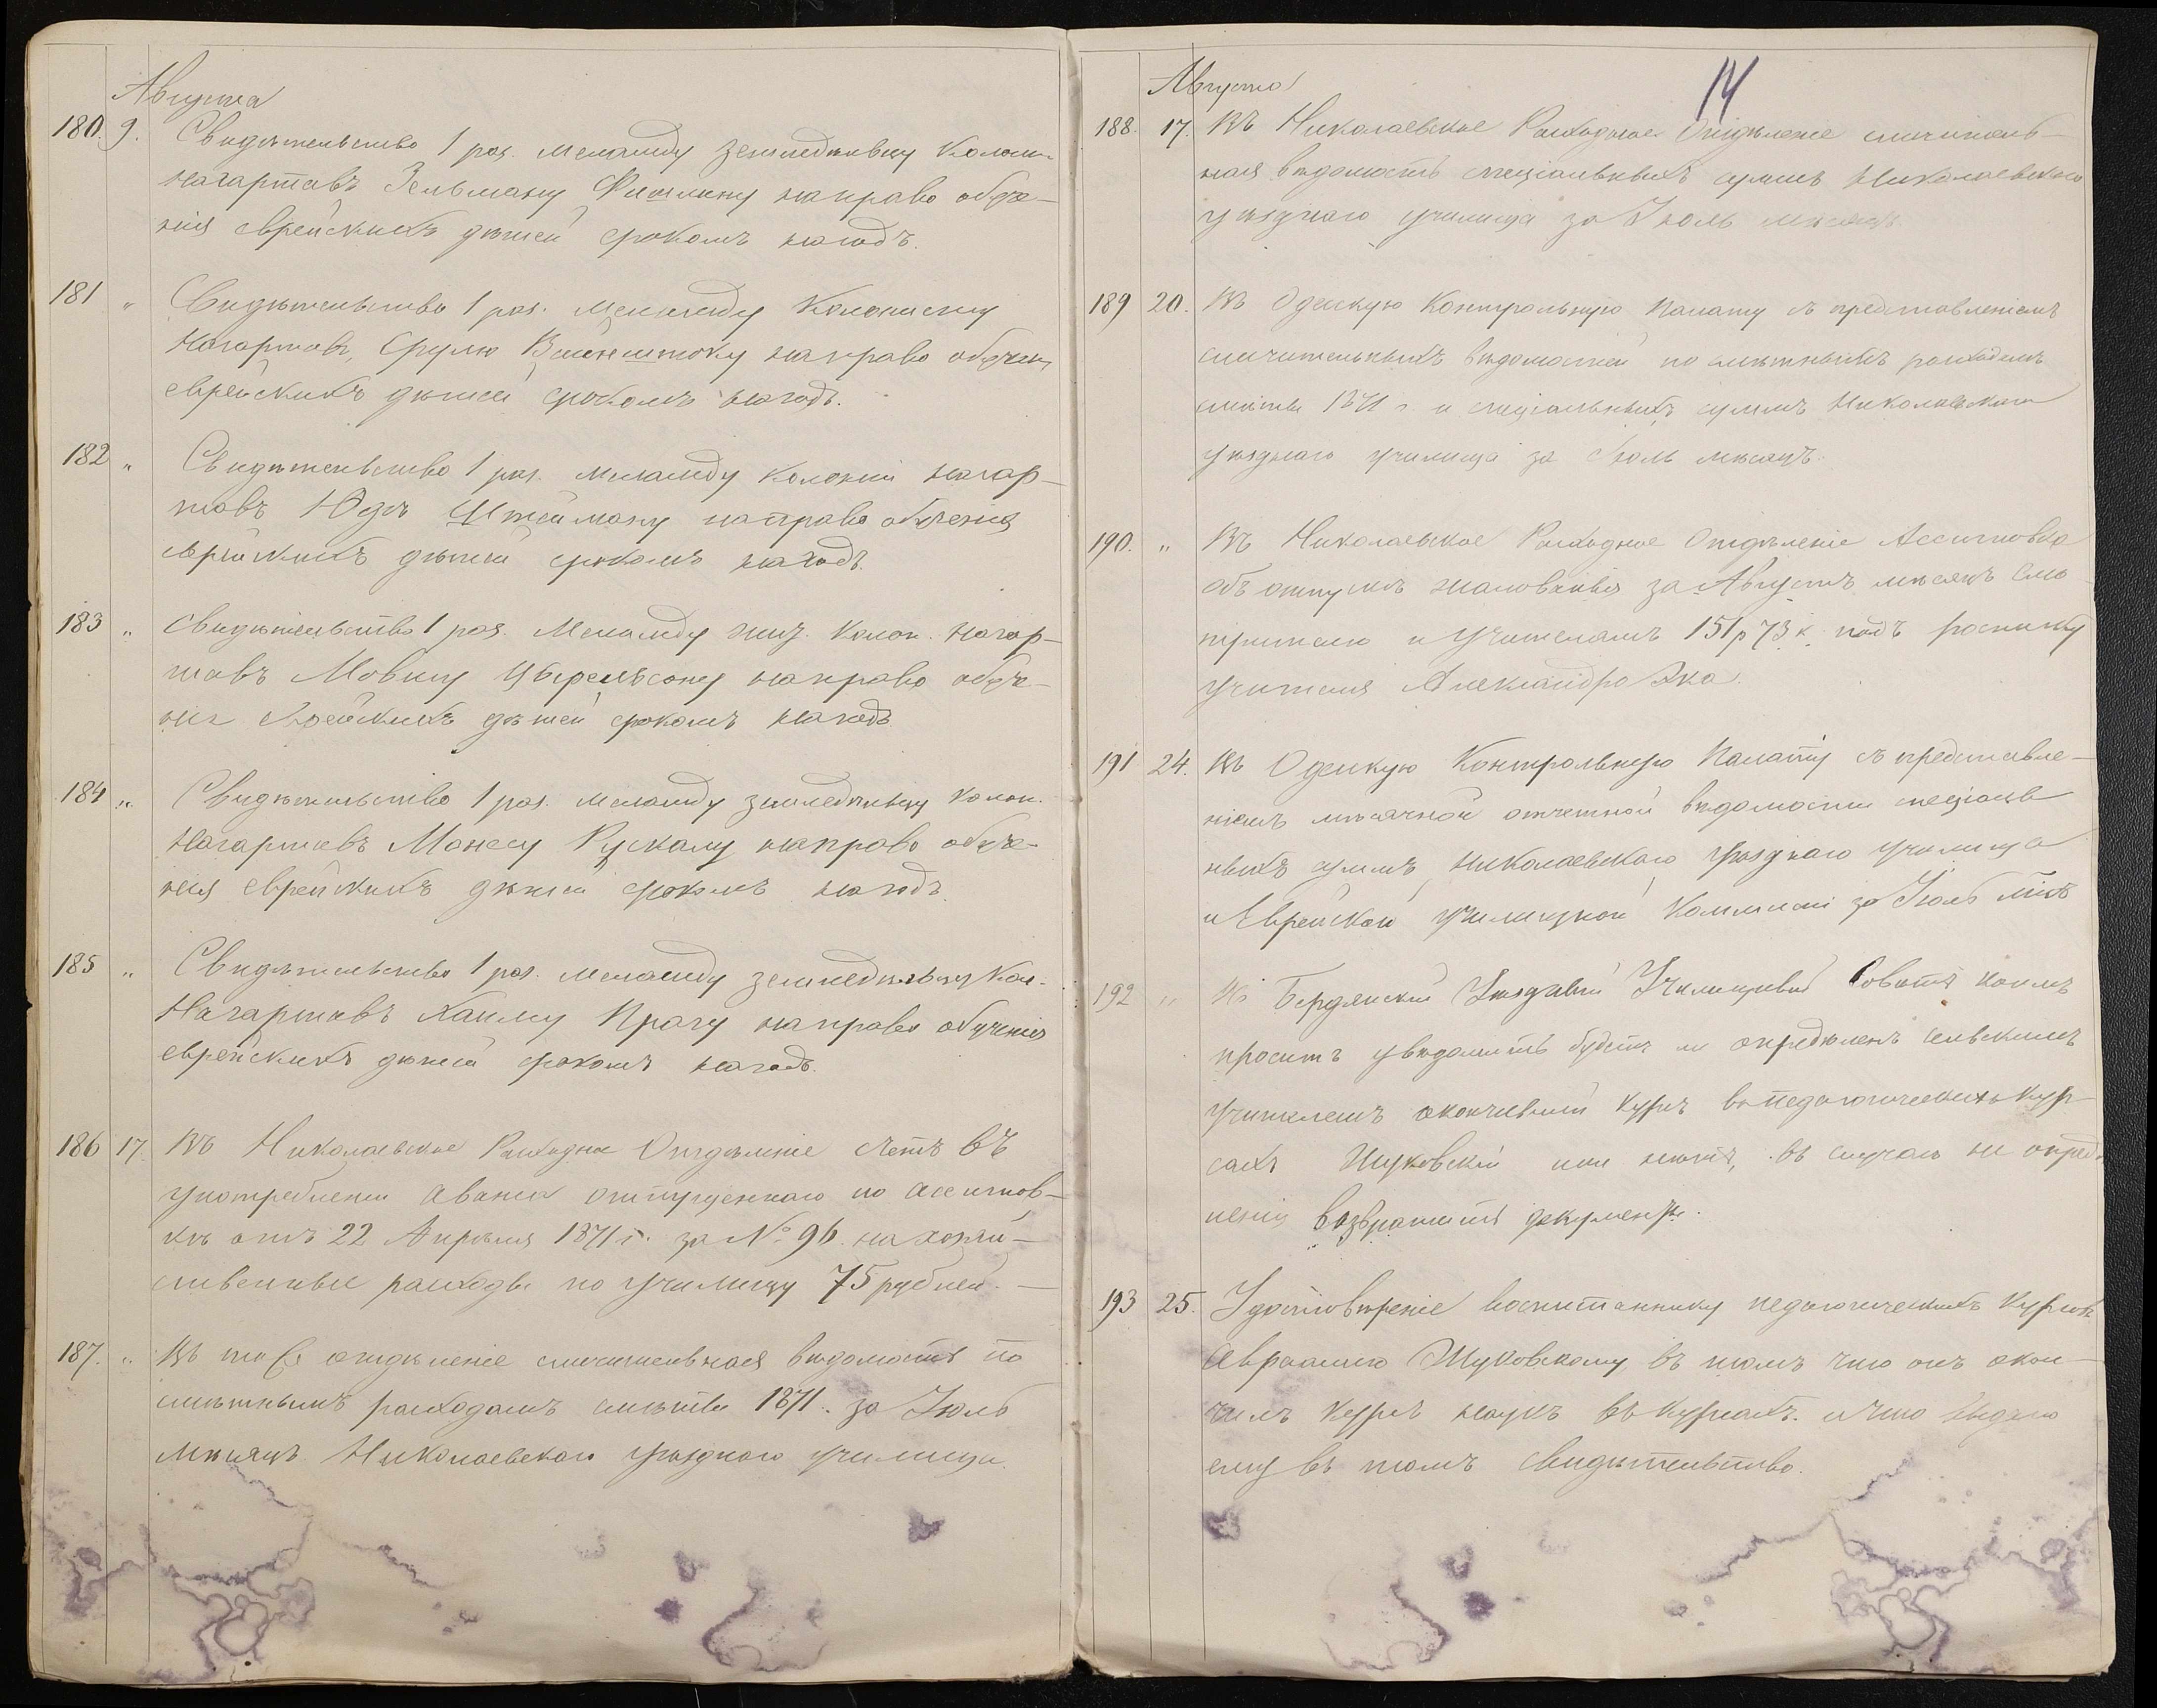 Августа
180. 9. Свидетельство 1 раз. Меламеду земледѣльцу Колон.
Нагартавъ Зельману Фишлину на право обуче-
нія еврейскихъ дѣтей срокомъ на годъ.
181 " Свидѣтельство 1 раз. Меламеду Колонисту
Нагартавъ, Срулю Вайнштоку на право обучен.
еврейскихъ дѣтей срокомъ на годъ.
182 " Свидѣтельство 1 раз. меламеду Колоніи Нагар-
тавъ Юдѣ Штейману на право обученія
еврейскихъ дѣтей срокомъ на годъ.
183 " Свидѣтельство 1 раз. Меламеду жит. Колон. Нагар-
тавъ Мовшу на право обуче-
нія Еврейскихъ дѣтей срокомъ на годъ
184 " Свидѣтельство 1 раз. меламеду земледѣльцу колон.
Нагартавъ Манесу на право обуче-
нія еврейскихъ дѣтей срокомъ на годъ.
185 " Свидѣтельство 1 раз. меламеду земледѣльцу Кол.
Нагартавъ Хаиму Прагу на право обученія
еврейскихъ дѣтей срокомъ на годъ.
186 17. Въ Николаевское Расходное Отдѣленіе счетъ въ
употребленіи аванса отпущеннаго по ассигнов-
кѣ отъ 22 Апрѣля 1871 г. за № 96 на хозяй-
ственные расходы по училищу 75 рублей. —
187. " Въ то же отдѣленіе сличительная вѣдомость по
смѣтнымъ расходамъ смѣты 1871. за Іюль
мѣсяцъ Николаевскаго уѣзднаго училища.
14
Августа
188. 17. Въ Николаевское Расходное Отдѣленіе сличитель-
ная вѣдомость спеціальныхъ суммъ Николаевскаго
уѣзднаго училища за Іюль мѣсяцъ.
189 20. Въ Одесскую Контрольную Палату съ представленіемъ
сличительныхъ вѣдомостей по смѣтнымъ расходамъ
смѣты 1871 г. и спеціальныхъ суммъ Николаевскаго
уѣзднаго училища за Іюль мѣсяцъ.
190. " Въ Николаевское Расходное Отдѣленіе Ассигновка
объ отпускѣ жалованья за Августъ мѣсяцъ Смо-
трителю и Учителямъ 151 р 73 к. подъ росписку
учителя
191 24. Въ Одесскую Контрольную Палату съ представле-
ніемъ мѣсячной отчетной вѣдомости спеціаль-
ныхъ суммъ Николаевскаго уѣзднаго училища
и Еврейской училищной Коммисіи за Іюль м-цъ
192 " Въ Бердянскій Уѣздный Училищный Совѣтъ коимъ
проситъ увѣдомить будетъ ли опредѣленъ сельскимъ
учителемъ окончившій курсъ въ педагогическихъ кур-
сахъ Жуковскій или нѣтъ, въ случаѣ не опред.
ленія возвратить документы.
193 25. Удостовѣреніе воспитаннику педагогическихъ курсовъ
Авраамію Жуковскому, въ томъ что онъ окон-
чилъ курсъ наукъ въ курсахъ. и что выдано
ему въ томъ свидѣтельство.